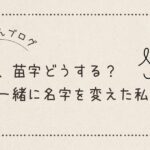 んブログ
、苗字どうする？
一緒に名字を変えた私